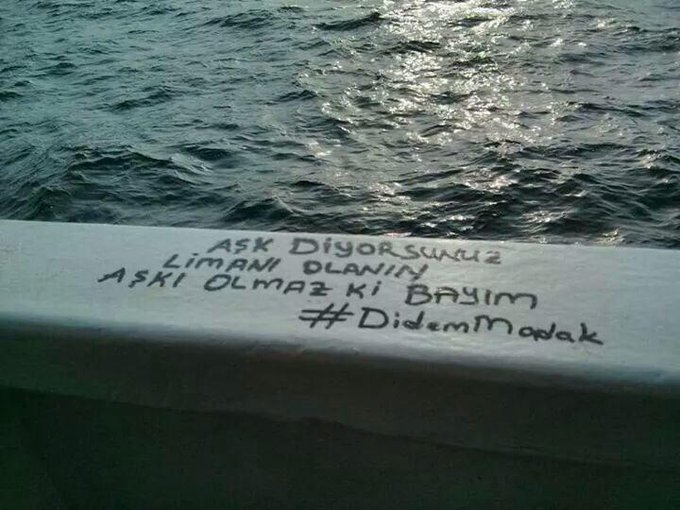 AŞK DİYORSUNUZ
LİMANI OLANIN
AŞKI OLMAZ Kİ BAYIM
#DidemMadak